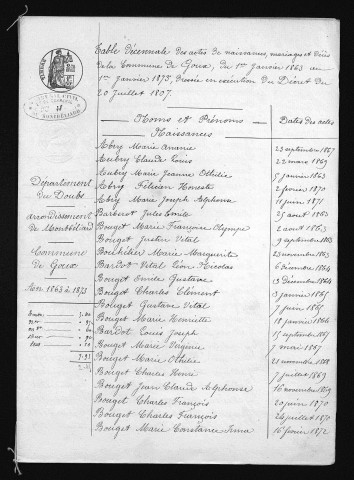 Table Décennale des actes de naissances, mariages et Décès
de la Commune de Goux, du 1er Janvier 1863 au
1er Janvier 1873, dressée en exécution du Décret du
20 Juillet 1807.
Noms et Prénoms
Dates des actes
Naissances
Département
du Doubs
arrondissement
de Montbéliard
Commune
de Goux
An 1863 à 1873
Abry Marie 23 septembre 1867
Aubry Claude Louis 22 mars 1869
Aubry Marie Jeanne Othilie 5 janvier 1863
Abry Félicien Honoste 2 février 1870
Abry Marie Joseph Alphonse 11 juin 1871
Barbenot Jules Emile 25 août 1863
Bouget Marie Françoise Olympe 2 août 1863
Bouget Justin Vital 9 septembre 1863
Bouthilier Marie Marguerite 23 novembre 1863
Bardot Vital Léon Nicolas 6 Décembre 1864
Bouget Emile Gustave 13 Décembre 1864
Bouget Charles Clément 8 janvier 1865
Bouget Gustave Vital 7 juin 1865
Bouget Marie Henriette 18 janvier 1866
Bardot Louis Joseph 15 septembre 1867
Bouget Marie Virginie 7 mai 1867
Bouget Marie Othilie 21 novembre 1868
Bouget Charles Henri 7 juillet 1869
Bouget Jean Claude Alphonse 16 novembre 1869
Bouget Charles François 20 juin 1870
Bouget Charles François 26 juillet 1870
Bouget Marie Constance Irma 15 février 1872